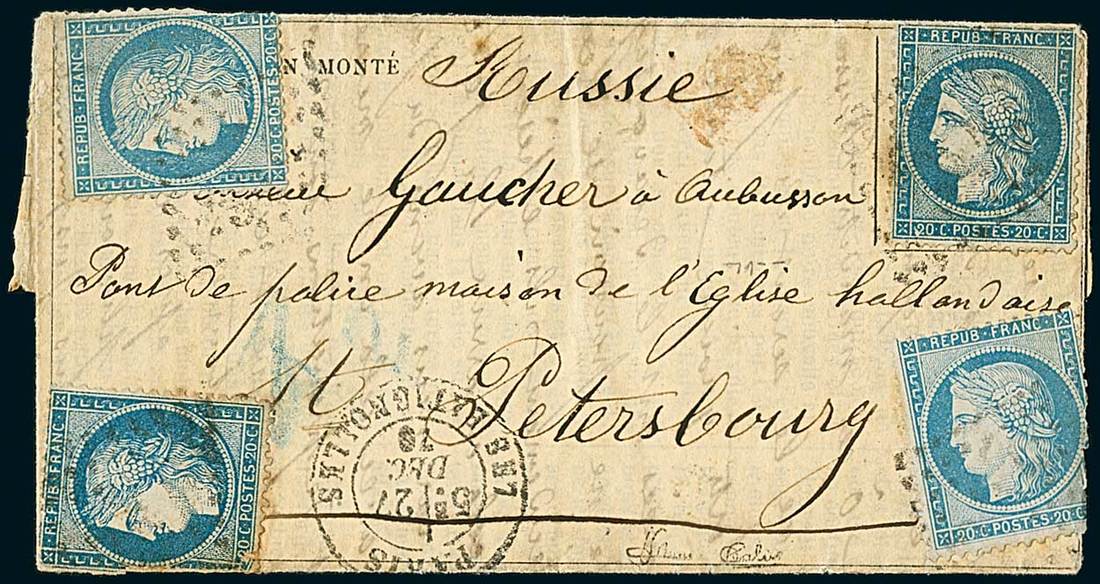 REPUB·FRANC·
20·C·POSTES·20·C·
N MONTÉ
Russie
REPUB·FRANC·
20·C·POSTES·20·C·
Gaucher à Aubusson
Pont de police maison de l'Eglise hollandaise
St Petersbourg
REPUB·FRANC·
20·C·POSTES·20·C·
REPUB·FRANC·
20·C·POSTES·20·C·
PARIS
LES BATIGNOLLES
5E 27
DEC.
70